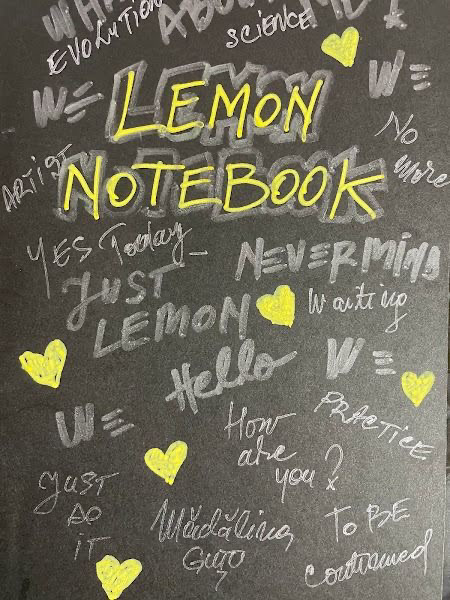 EVOLUTION
SCIENCE
WE
WE
LEMON
NOTEBOOK
ARTIST
No
More
YES Today
NEVERMIND
JUST
LEMON
Waiting
Hello
WE
WE
How
are
you?
PRACTICE
JUST
DO
IT
Mădălina
To BE
Continued